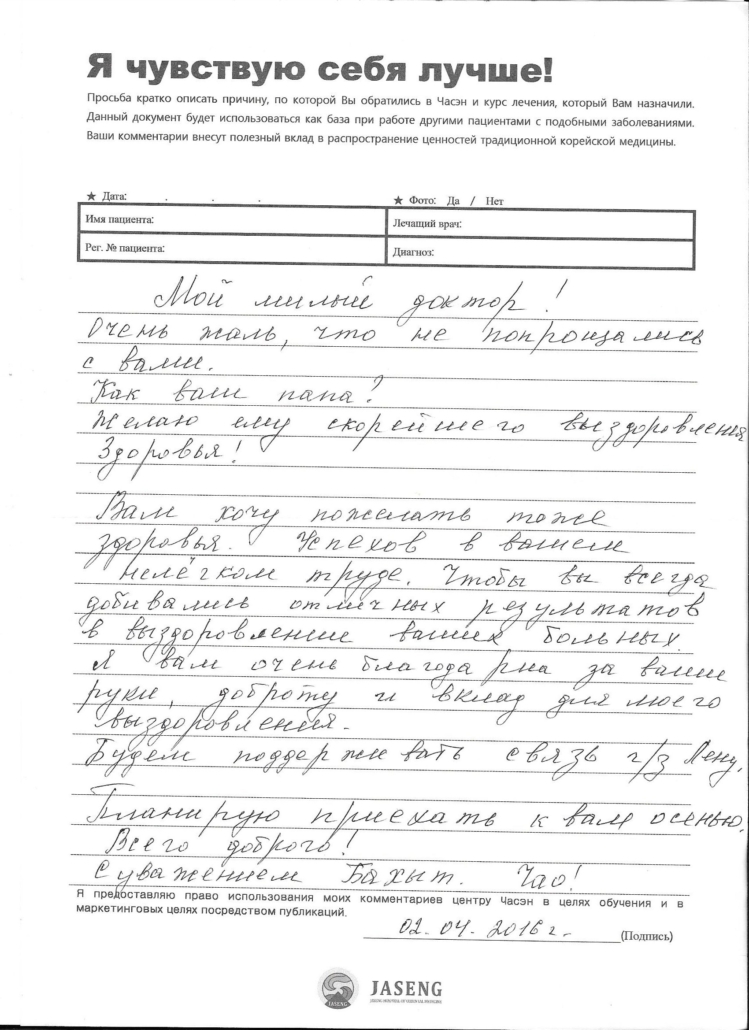 Я чувствую себя лучше!
Просьба кратко описать причину, по которой Вы обратились в Часэн и курс лечения, который Вам назначили.
Данный документ будет использоваться как база при работе другими пациентами с подобными заболеваниями.
Ваши комментарии внесут полезный вклад в распространение ценностей традиционной корейской медицины.
★ Дата: . . .
★ Фото: Да / Нет
Имя пациента:
Лечащий врач:
Рег. № пациента:
Диагноз:
Мой милый доктор!
Очень жаль, что не попрощались
с вами.
Как ваш папа?
Желаю ему скорейшего выздоровления
Здоровья!
Вам хочу пожелать тоже
здоровья. Успехов в вашем
нелёгком труде. Чтобы вы всегда
добивались отличных результатов
в выздоровлении ваших больных.
Я вам очень благодарна за ваши
руки, доброту и вклад для моего
выздоровления.
Будем поддерживать связь ч/з Лену.
Планирую приехать к вам осенью.
Всего доброго!
С уважением Бахыт. Чао!
Я предоставляю право использования моих комментариев центру Часэн в целях обучения и в
маркетинговых целях посредством публикаций.
02.04.2016 г.
(Подпись)
JASENG